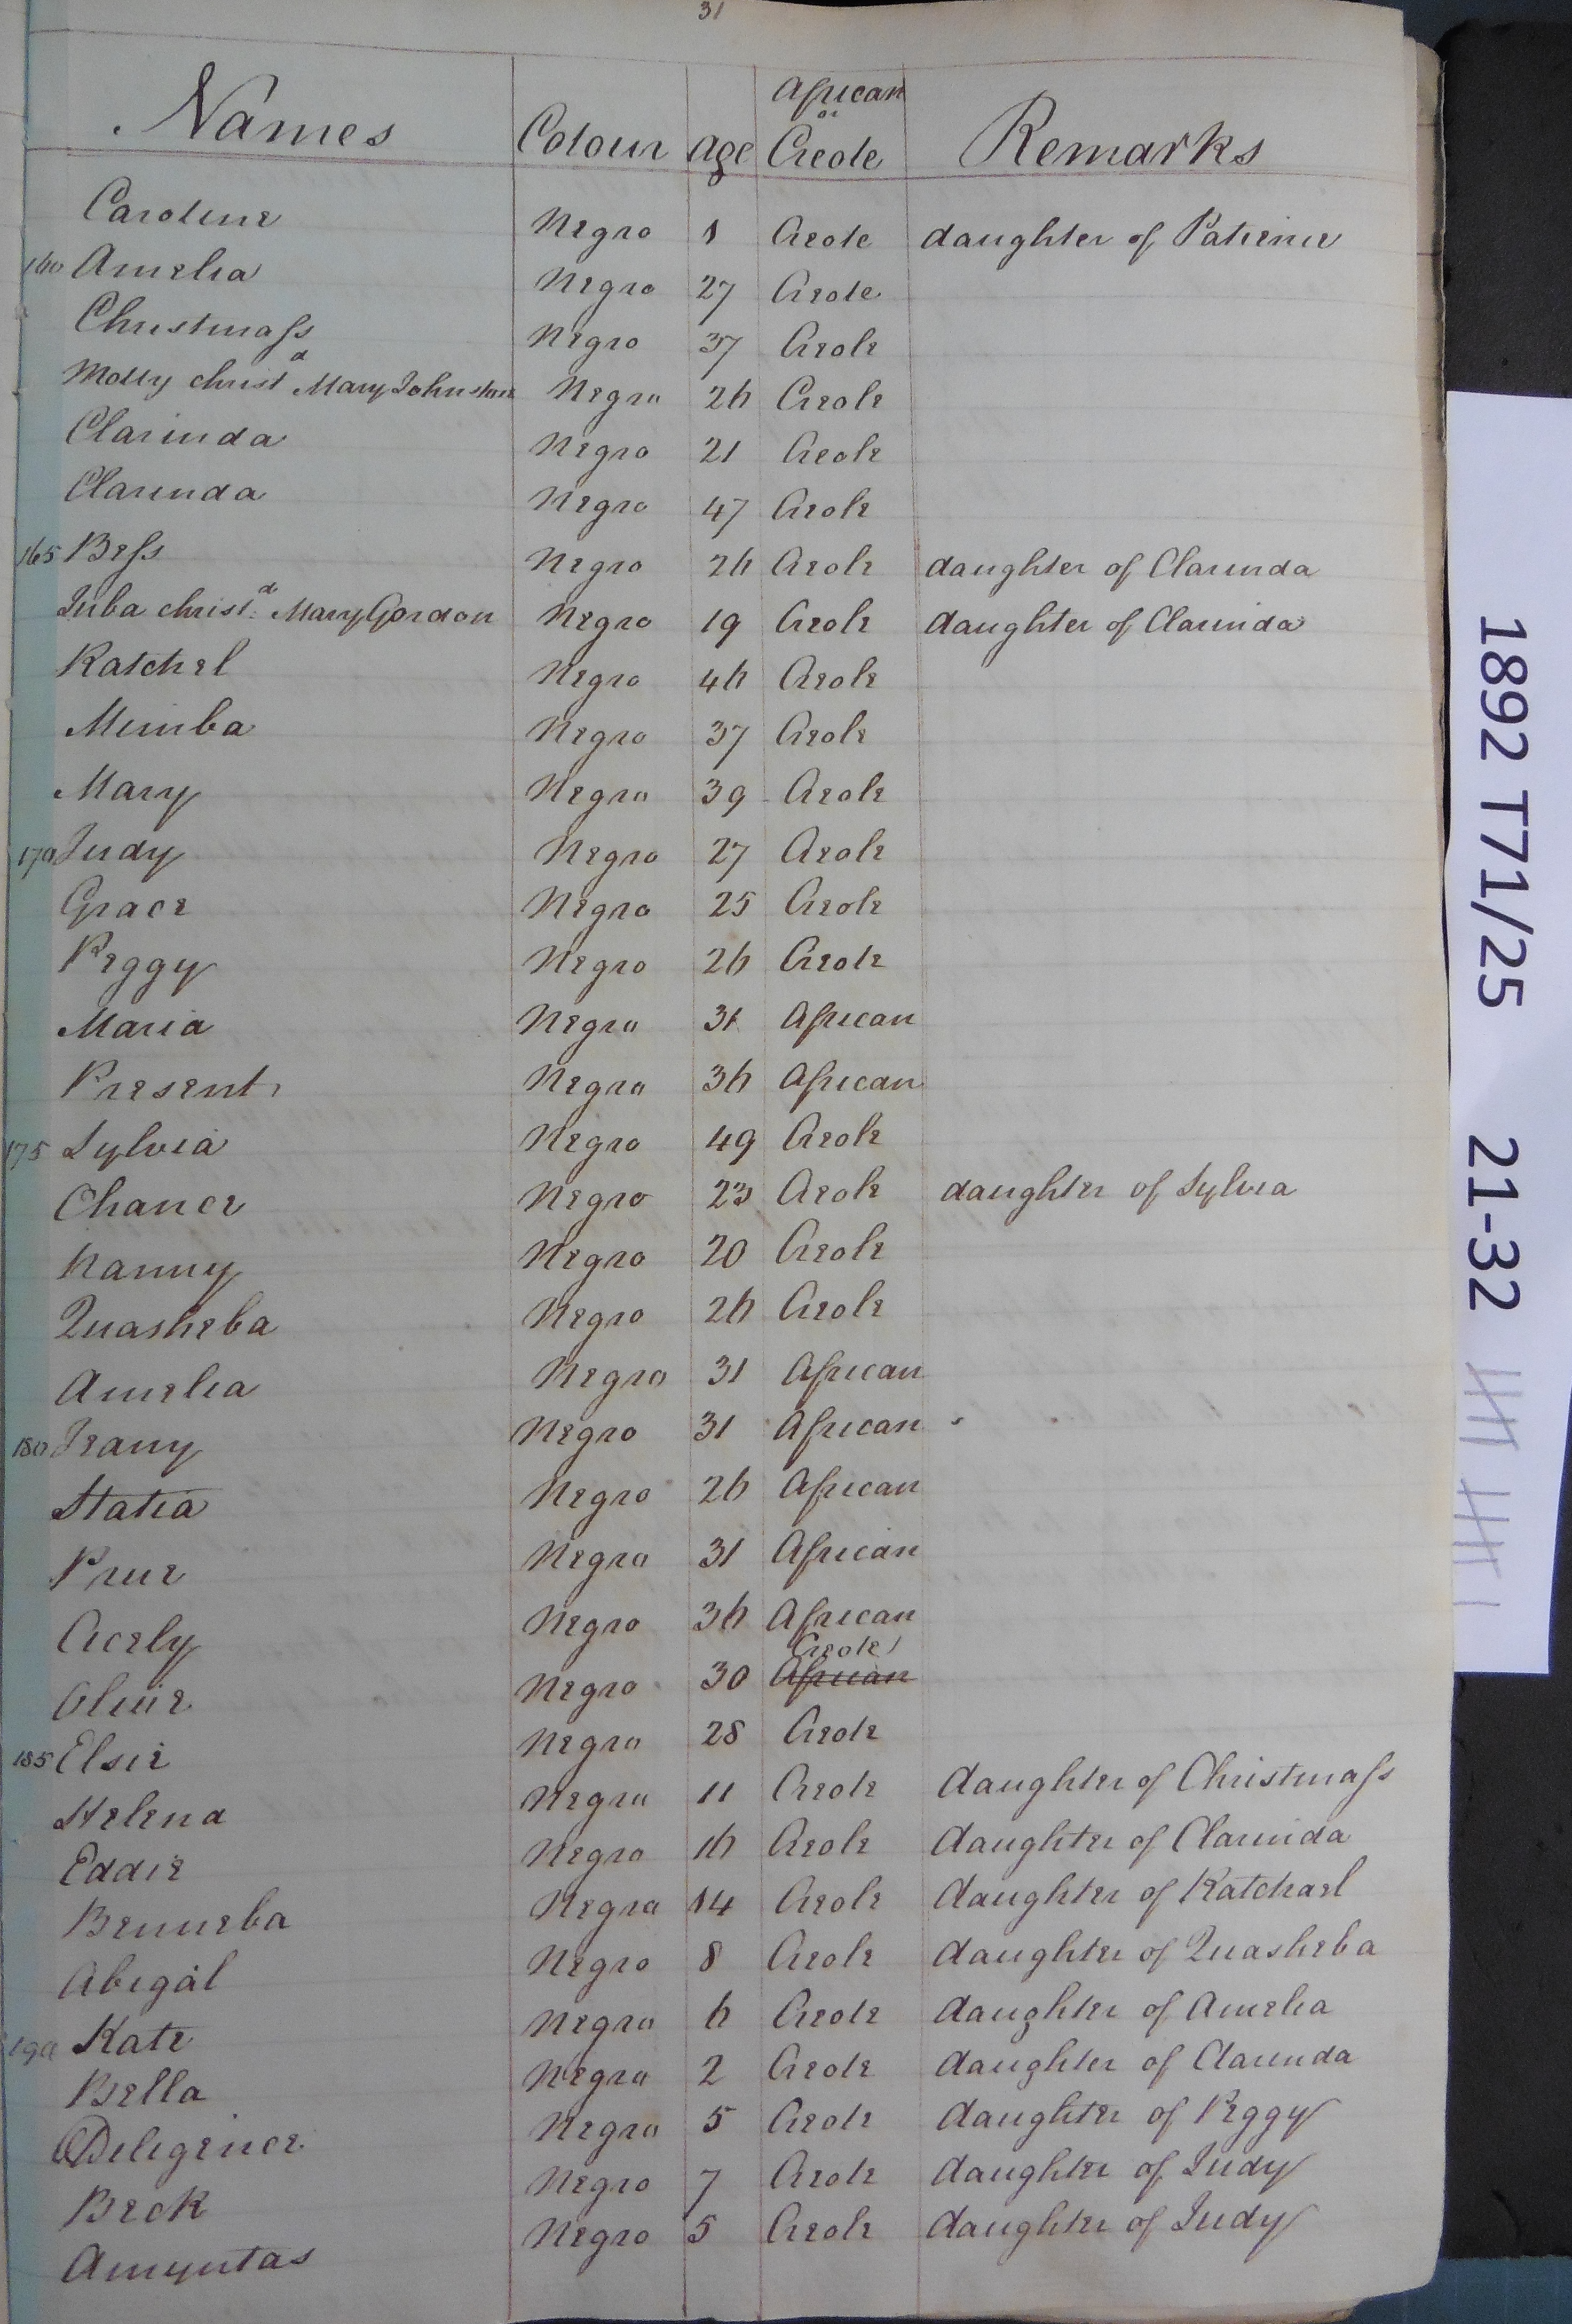 31
Names Colour Age African or Creole Remarks
Caroline Negro 1 Creole daughter of Patience
160 Amelia Negro 27 Creole
Christmass Negro 37 Creole
Molly christd Mary Johnston Negro 26 Creole
Clarinda Negro 21 Creole
Clarinda Negro 47 Creole
165 Bess Negro 26 Creole daughter of Clarinda
Juba christd. Mary Gordon Negro 19 Creole daughter of Clarinda
Ratchel Negro 46 Creole
Mimba Negro 37 Creole
Mary Negro 39 Creole
170 Judy Negro 27 Creole
Grace Negro 25 Creole
Peggy Negro 26 Creole
Maria Negro 31 African
Present Negro 36 African
175 Sylvia Negro 49 Creole
Chance Negro 23 Creole daughter of Sylvia
Nanny Negro 20 Creole
Quasheba Negro 26 Creole
Amelia Negro 31 African
180 Jeany Negro 31 African
Statia Negro 26 African
Prue Negro 31 African
Cicely Negro 36 African
Olive Negro 30 African Creole
185 Elsie Negro 28 Creole
Helena Negro 11 Creole daughter of Christmass
Eddie Negro 16 Creole daughter of Clarinda
Benneba Negro 14 Creole daughter of Ratchael
Abigal Negro 8 Creole daughter of Quasheba
190 Kate Negro 6 Creole daughter of Amelia
Bella Negro 2 Creole daughter of Clarinda
Deligence Negro 5 Creole daughter of Peggy
Beck Negro 7 Creole daughter of Judy
Amyntas Negro 5 Creole daughter of Judy
1892 T71/25 21-32